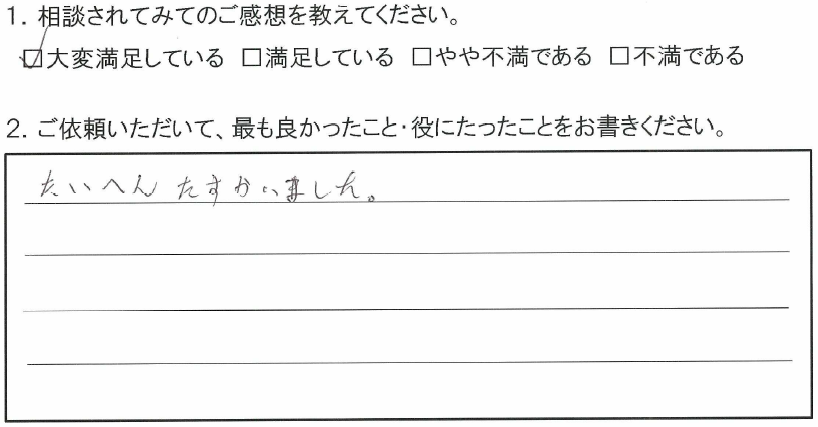 1. 相談されてみてのご感想を教えてください。
☑大変満足している □満足している □やや不満である □不満である
2. ご依頼いただいて、最も良かったこと・役にたったことをお書きください。
たいへん たすかいました。